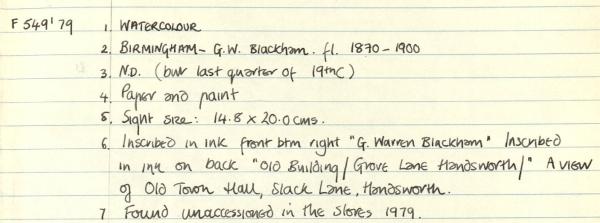 F 549'79 1. WATERCOLOUR
2. BIRMINGHAM - G.W. Blackham. fl. 1870 - 1900
3. N.D. (but last quarter of 19thC)
4. Paper and paint
5. Sight size: 14.8 x 20.0 cms.
6. Inscribed in ink front btm right "G. Warren Blackham" Inscribed
in ink on back "Old Building / Grove Lane Handsworth /" A view
of Old Town Hall, Slack Lane, Handsworth.
7 Found unaccessioned in the stores 1979.